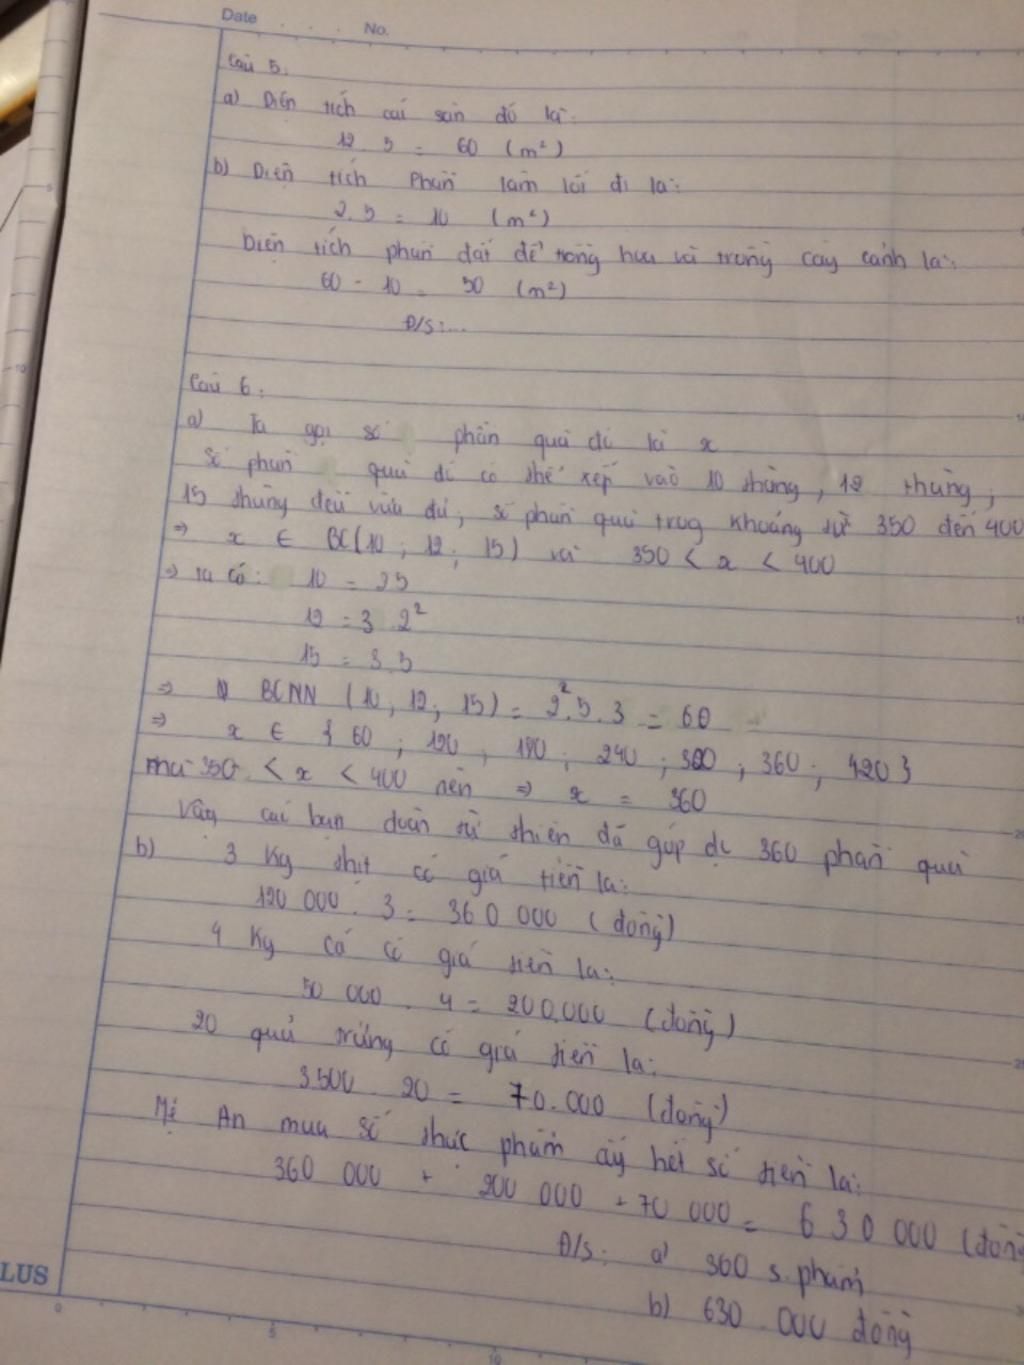 Date . . . . No.
Câu 5:
a) Diện tích cái sân đó là:
12 . 5 = 60 (m²)
b) Diện tích Phần làm lối đi là:
2.5 = 10 (m²)
Diện tích phần đất để trồng hoa và trồng cây cảnh là:
60 - 10 = 50 (m²)
Đ/S:...
Câu 6:
a) Ta gọi số phần quà đó là x
Số phần quà đó có thể xếp vào 10 thùng, 12 thùng,
15 thùng đều vừa đủ, số phần quà trog khoảng từ 350 đến 400
⇒ x ∈ BC(10; 12; 15) và 350 < x < 400
⇒ Ta có: 10 = 2.5
12 = 3.2²
15 = 3.5
⇒ BCNN (10, 12, 15) = 2².5.3 = 60
⇒ x ∈ {60; 120; 180; 240; 300; 360; 420}
mà 350 < x < 400 nên ⇒ x = 360
Vậy các bạn đoàn từ thiện đã góp đc 360 phần quà
b) 3 Kg thịt có giá tiền là:
120 000 . 3 = 360 000 (đồng)
4 Kg cá có giá tiền là:
50 000 . 4 = 200.000 (đồng)
20 quả trứng có giá tiền là:
3500 . 20 = 70.000 (đồng)
Mẹ An mua số thực phẩm ấy hết số tiền là:
360 000 + 200 000 + 70 000 = 630 000 (đồng
Đ/S: a) 360 s.phẩm
b) 630.000 đồng
LUS
0 5 10